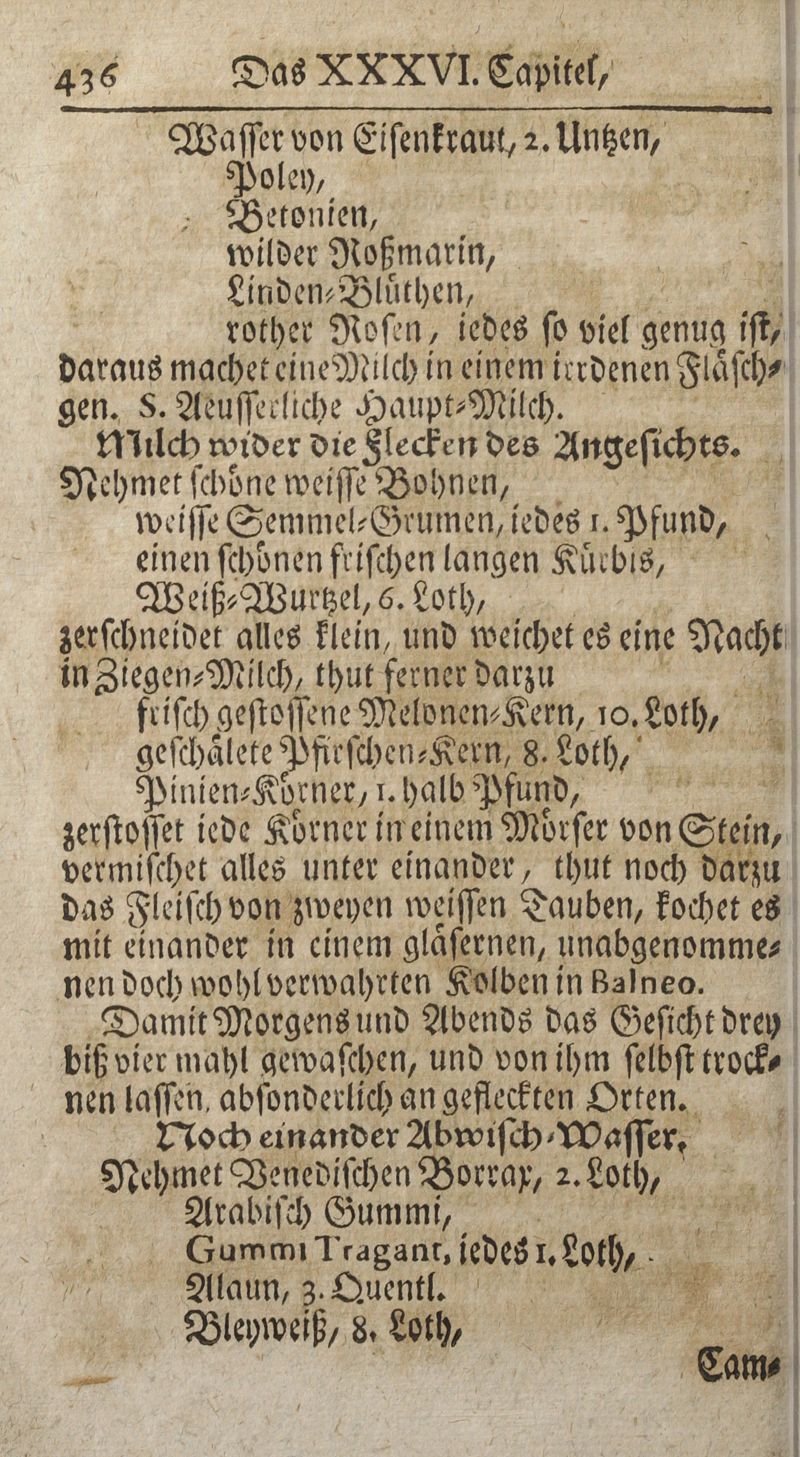 436 Das XXXVI. Capitel,
Wasser von Eisenkraut, 2. Untzen,
Poley,
Betonien,
wilder Roßmarin,
Linden-Blüthen,
rother Rosen, iedes so viel genug ist,
daraus machet eine Milch in einem irrdenen Fläsch-
gen. S. Aeusserliche Haupt-Milch.
Milch wider die Flecken des Angesichts.
Nehmet schöne weisse Bohnen,
weisse Semmel-Grumen, iedes 1. Pfund,
einen schönen frischen langen Kürbis,
Weiß-Wurtzel, 6. Loth,
zerschneidet alles klein, und weichet es eine Nacht
in Ziegen-Milch, thut ferner darzu
frisch gestossene Melonen-Kern, 10. Loth,
geschälete Pfirschen-Kern, 8. Loth,
Pinien-Körner, 1. halb Pfund,
zerstosset iede Körner in einem Mörser von Stein,
vermischet alles unter einander, thut noch darzu
das Fleisch von zweyen weissen Tauben, kochet es
mit einander in einem gläsernen, unabgenomme-
nen doch wohl verwahrten Kolben in Balneo.
Damit Morgens und Abends das Gesicht drey
biß vier mahl gewaschen, und von ihm selbst trock-
nen lassen, absonderlich an gefleckten Orten.
Noch einander Abwisch-Wasser,
Nehmet Venedischen Borrax, 2. Loth,
Arabisch Gummi,
Gummi Tragant, iedes 1. Loth,
Alaun, 3. Quentl.
Bleyweiß, 8. Loth,
Cam-